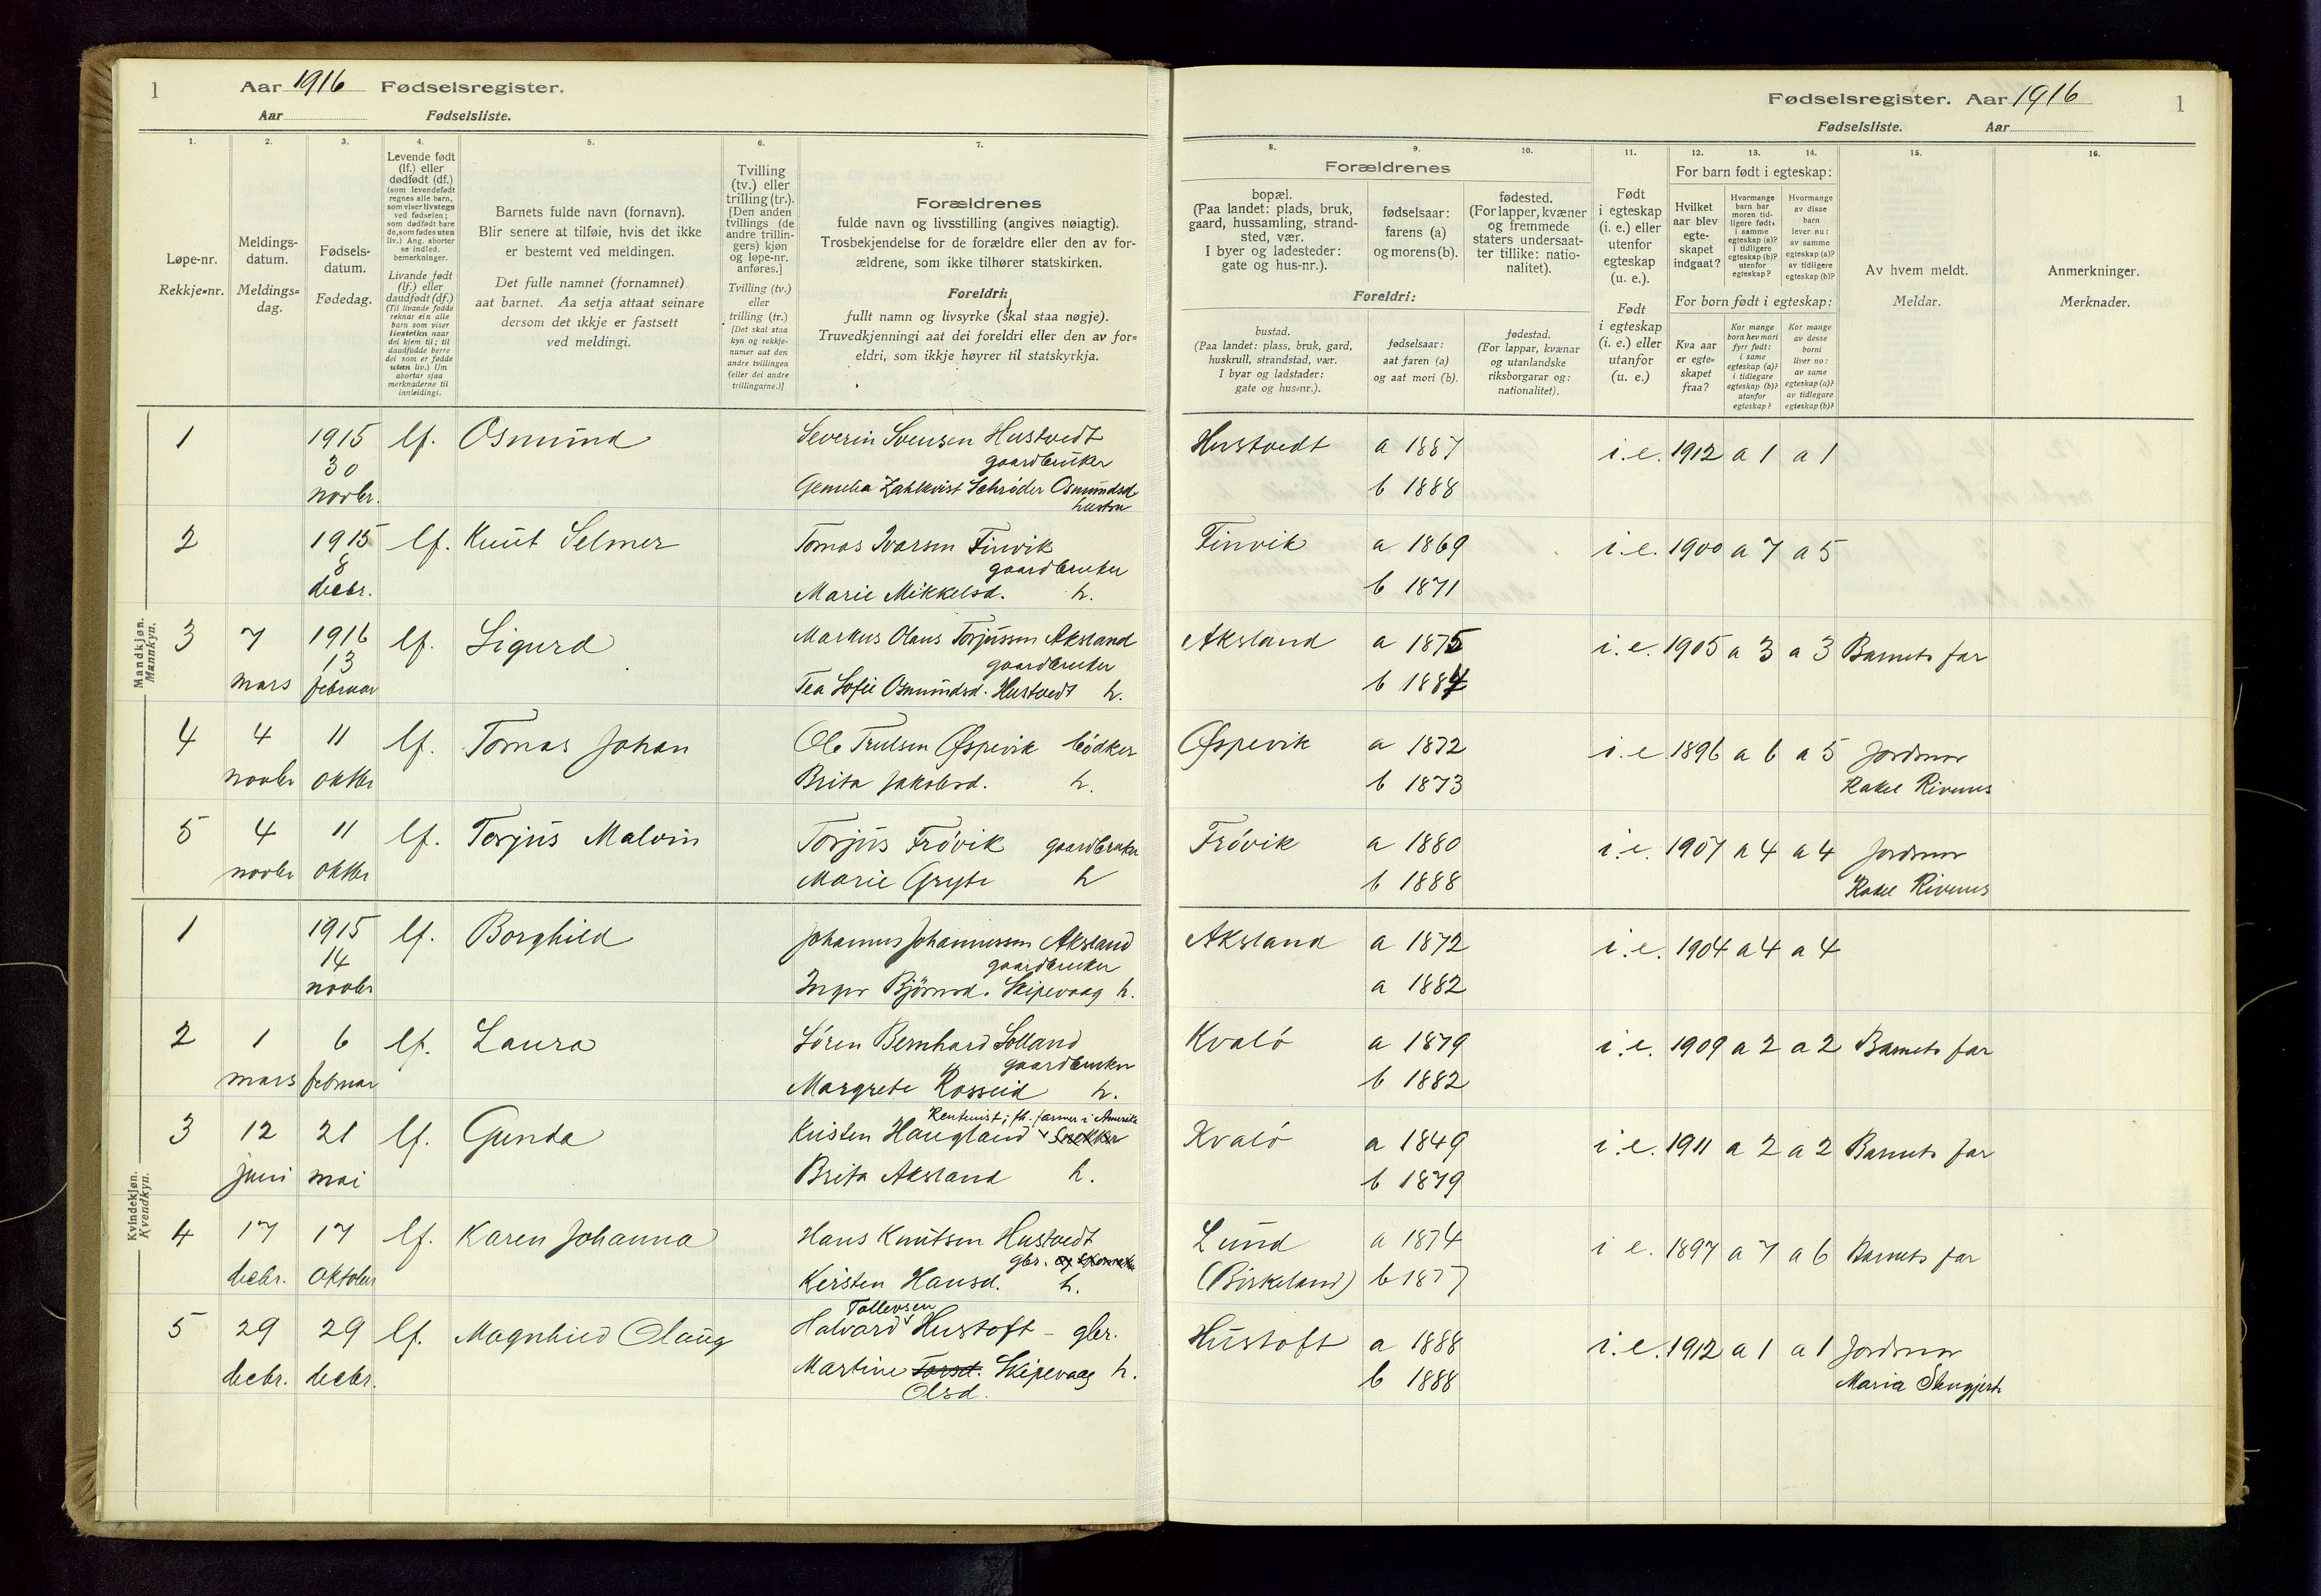 1 Aar 1916 Fødselsregister.
Aar Fødselsliste.
1.
Løpe-nr.
Rekkje-nr.
2.
Meldings-
datum.
Meldings-
dag.
3.
Fødsels-
datum.
Fødedag.
4.
Levende født
(lf.) eller
dødfødt (df.)
(som levendefødt
regnes alle barn,
som viser livstegn
ved fødselen;
som dødfødt bare
de, som fødes uten
liv.) Ang. aborter
se indled.
bemerkninger.
Livande født
(lf.) eller
daudfødt (df.)
(Til livande fødde
reknar ein alle
born som viser
livsteikn naar
dei kjem til; til
daudfødde berre
dei som er fødde
utan liv.) Um
abortar sjaa
merknaderne til
innleidingi.
5.
Barnets fulde navn (fornavn).
Blir senere at tilføie, hvis det ikke
er bestemt ved meldingen.
Det fulle namnet (fornamnet)
aat barnet. Aa setja attaat seinare
dersom det ikkje er fastsett
ved meldingi.
6.
Tvilling
(tv.) eller
trilling (tr.).
[Den anden
tvillings (de
andre trillin-
gers) kjøn
og løpe-nr.
anføres.]
Tvilling (tv.)
eller
trilling (tr.)
[Det skal staa
kyn og rekkje-
numer aat den
andre tvillingen
(eller dei andre
trillingarne.)]
7.
Forældrenes
fulde navn og livsstilling (angives nøiagtig).
Trosbekjendelse for de forældre eller den av for-
ældrene, som ikke tilhører statskirken.
Foreldri:
fullt namn og livsyrke (skal staa nøgje).
Truvedkjenningi aat dei foreldri eller den av for-
eldri, som ikkje høyrer til statskyrkja.
Mandkjøn.
Mannkyn.
1 1915 lf. Osmund Severin Svensen Hustvedt
30 gaardbruker
novbr. Zahlkvist Schrøder Osmundsd.
hustru
2 1915 lf. Knut Selmer Tomas Ivarsen Tinvik
8 gaardbruker
decbr. Marie Mikkelsd. h.
3 7 1916 lf. Sigurd Markus Olaus Torjussen Aksland
13 gaardbruker
mars februar Tea Sofie Osmundsd. Hustvedt h.
4 4 11 lf. Tomas Johan Ole Trulsen Øspevik bødker
novbr oktbr Brita Jakobsd. h.
5 4 11 lf. Torjus Malvin Torjus Frövik gaardbruker
novbr oktbr Marie Gryte h
Kvindekjøn.
Kvendkyn.
1 1915 lf. Borghild Johannes Johannessen Aksland
14 gaardbruker
novbr Inger Björnsd. Skipevaag h.
2 1 6 lf. Laura Sören Bernhard Solland
gaardbruker
mars februar Margrete Rosseid h.
Rentenist; fh. farmer i Amerika
3 12 21 lf. Gunda Kristen Haugland snekker
juni mai Brita Aksland h.
4 17 17 lf. Karen Johanna Hans Knutsen Hustvedt
gbr. og skomaker
decbr. oktober Kersten Hansd. h.
Tollevsen
5 29 29 lf. Magnhild Olaug Halvard Hustoft - gbr.
decbr. decbr. Martine Torsd. Skipevaag h.
Olsd.
Fødselsregister. Aar 1916 1
Fødselsliste. Aar
Forældrenes
8.
bopæl.
(Paa landet: plads, bruk,
gaard, hussamling, strand-
sted, vær.
I byer og ladesteder:
gate og hus-nr.).
9.
fødselsaar:
farens (a)
og morens (b).
10.
fødested.
(For lapper, kvæner
og fremmede
staters undersaat-
ter tillike: natio-
nalitet).
Foreldri:
bustad.
(Paa landet: plass, bruk, gard,
huskrull, strandstad, vær.
I byar og ladstader:
gate og hus-nr.).
fødselsaar:
aat faren (a)
og aat mori (b).
fødestad.
(For lappar, kvænar
og utanlandske
riksborgarar og:
nationalitet).
11.
Født
i egteskap
(i. e.) eller
utenfor
egteskap
(u. e.).
Født
i egteskap
(i. e.) eller
utanfor
(u. e.)
For barn født i egteskap:
12.
Hvilket
aar blev
egte-
skapet
indgaat?
13.
Hvormange
barn har
moren tid-
ligere født:
i samme
egteskap (a)?
i tidligere
egteskap (b)?
utenfor
egteskap?
14.
Hvormange
av disse
barn
lever nu:
av samme
egteskap (a)?
av tidligere
egteskap (b)?
For born født i egteskap:
Kva aar
er egte-
skapet
fraa?
Kor mange
born hev mori
fyrr født:
i same
egteskap (a)?
i tidlegare
egteskap (b)?
utanfor
egteskap?
Kor mange
av desse
borni
liver no:
av same
egteskap (a)?
av tidlegare
egteskap (b)?
15.
Av hvem meldt.
Meldar.
16.
Anmerkninger.
Merknader.
Hustvedt a 1887 i.e. 1912 a 1 a 1
b 1888
Tinvik a 1869 i.e. 1900 a 7 a 5
b 1871
Aksland a 1875 i.e. 1905 a 3 a 3 Barnets far
b 1884
Øspevik a 1872 i.e 1896 a 6 a 5 Jordmor
b 1873 Rakel Rivenes
Frövik a 1880 i.e. 1907 a 4 a 4 Jordmor
b 1888 Rakel Rivenes
Aksland a 1872 i.e. 1904 a 4 a 4
a 1882
Kvalö a 1879 i.e. 1909 a 2 a 2 Barnets far
b 1882
Kvalö a 1849 i.e. 1911 a 2 a 2 Barnets far
b 1879
Lund a 1874 i e. 1897 a 7 a 6 Barnets far
(Birkeland) b 1877
Hustoft a 1888 i.e. 1912 a 1 a 1 Jordmor
b 1888 Maria